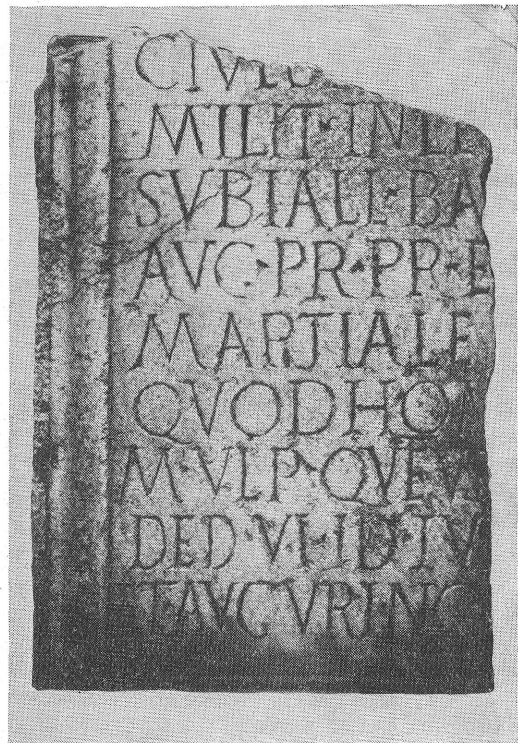 CIVI
MILIT·IN LE
SVB IALL·BA
AVG·PR·PR·E
MARTIALE
QVOD HON
M VLP·QVE
DED·VI·ID·IV
T AVGVRINO